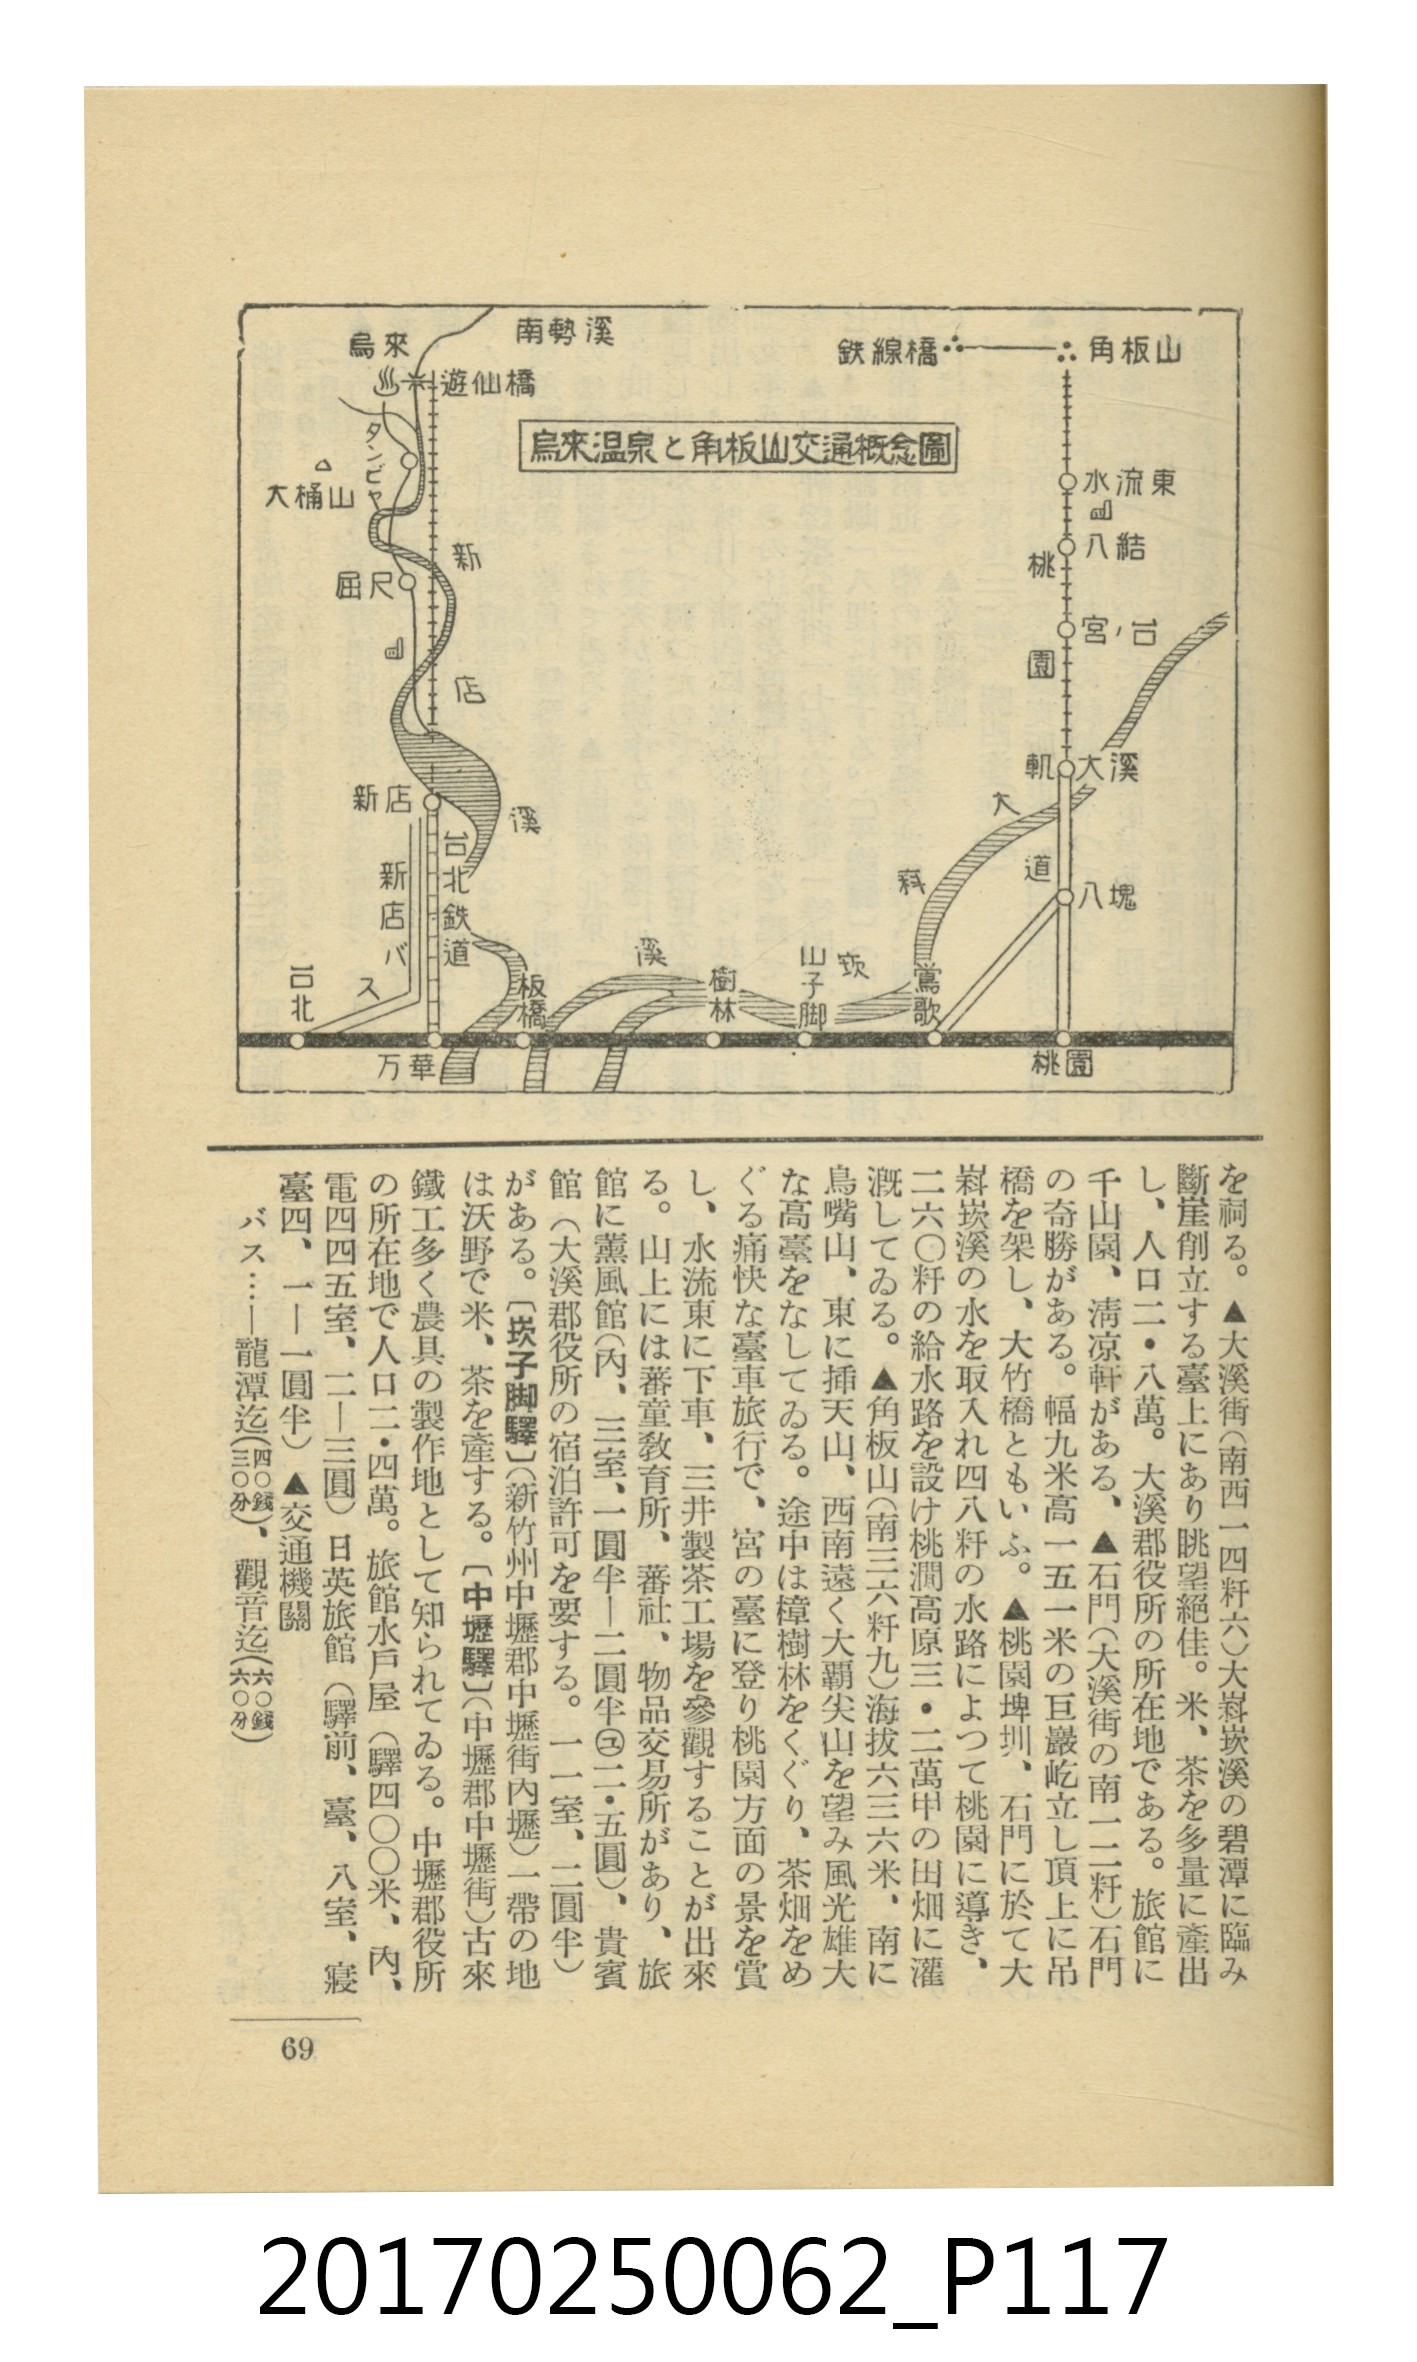 烏來
南勢溪
鉄線橋
角板山
遊仙橋
烏來温泉と角板山交通概念圖
タンピヤ
大桶山
水流東
八結
新
桃
屈尺
宮ノ台
園
店
軌
大溪
新店
溪
大
台北鉄道
道
新店バス
科
八塊
溪
崁
台北
板橋
樹林
山子脚
鶯歌
万華
桃園
を祠る。▲大溪街(南西一四粁六)大嵙崁溪の碧潭に臨み
斷崖削立する臺上にあり眺望絕佳。米、茶を多量に產出
し、人口二・八萬。大溪郡役所の所在地である。旅館に
千山園、淸凉軒がある、▲石門(大溪街の南一二粁)石門
の奇勝がある。幅九米高一五一米の巨巖屹立し頂上に吊
橋を架し、大竹橋ともいふ。▲桃園埤圳、石門に於て大
嵙崁溪の水を取入れ四八粁の水路によつて桃園に導き、
二六〇粁の給水路を設け桃澗高原三・二萬甲の田畑に灌
漑してゐる。▲角板山(南三六粁九)海拔六三六米、南に
鳥嘴山、東に挿天山、西南遠く大覇尖山を望み風光雄大
な高臺をなしてゐる。途中は樟樹林をくぐり、茶畑をめ
ぐる痛快な臺車旅行で、宮の臺に登り桃園方面の景を賞
し、水流東に下車、三井製茶工場を參觀することが出來
る。山上には蕃童敎育所、蕃社、物品交易所があり、旅
館に薰風館(內、三室、一圓半—二圓半㋴二・五圓)、貴賓
館(大溪郡役所の宿泊許可を要する。一一室、二圓半)
がある。〔崁子脚驛〕(新竹州中壢郡中壢街內壢)一帶の地
は沃野で米、茶を產する。〔中壢驛〕(中壢郡中壢街)古來
鐵工多く農具の製作地として知られてゐる。中壢郡役所
の所在地で人口二・四萬。旅館水戶屋(驛四〇〇米、內、
電四四五室、二—三圓)日英旅館(驛前、臺、八室、寢
臺四、一—一圓半)▲交通機關
バス…—龍潭迄(四〇錢三〇分)、觀音迄(六〇錢六〇分)
69
20170250062_P117